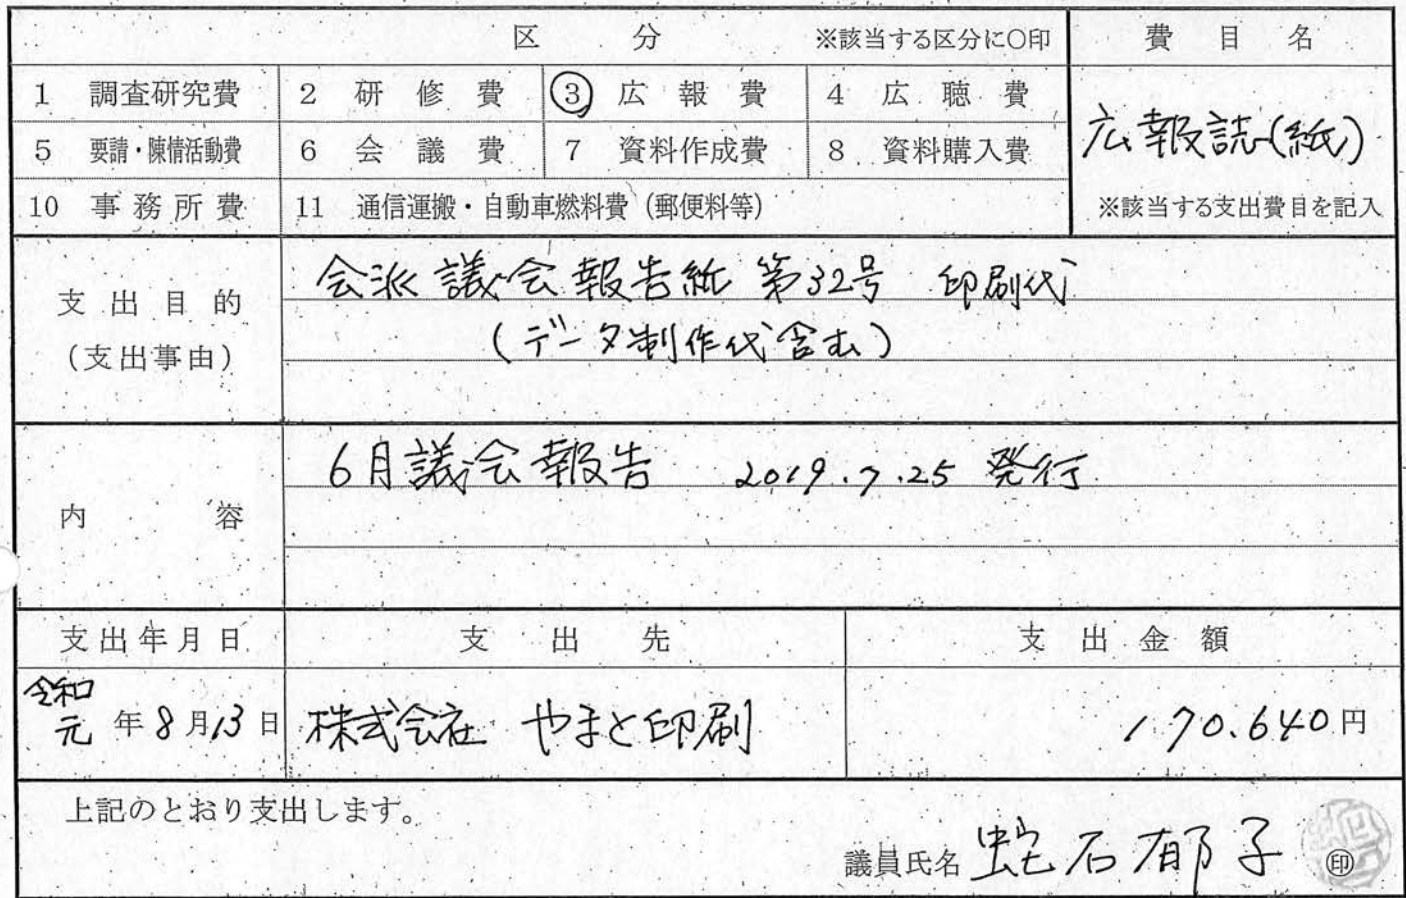 区 分 ※該当する区分に○印 費 目 名
1 調査研究費 2 研 修 費 ③ 広 報 費 4 広 聴 費
広報誌(紙)
5 要請・陳情活動費 6 会 議 費 7 資料作成費 8 資料購入費
10 事 務 所 費 11 通信運搬・自動車燃料費（郵便料等） ※該当する支出費目を記入
支 出 目 的
(支出事由)
会派議会報告紙 第32号 印刷代
(データ制作代含む)
内 容
6月議会報告 2019.7.25 発行
支出年月日 支 出 先 支 出 金 額
令和
元 年 8 月 13 日 株式会社 やまと印刷 170.640円
上記のとおり支出します。
議員氏名 蛇石郁子 ㊞